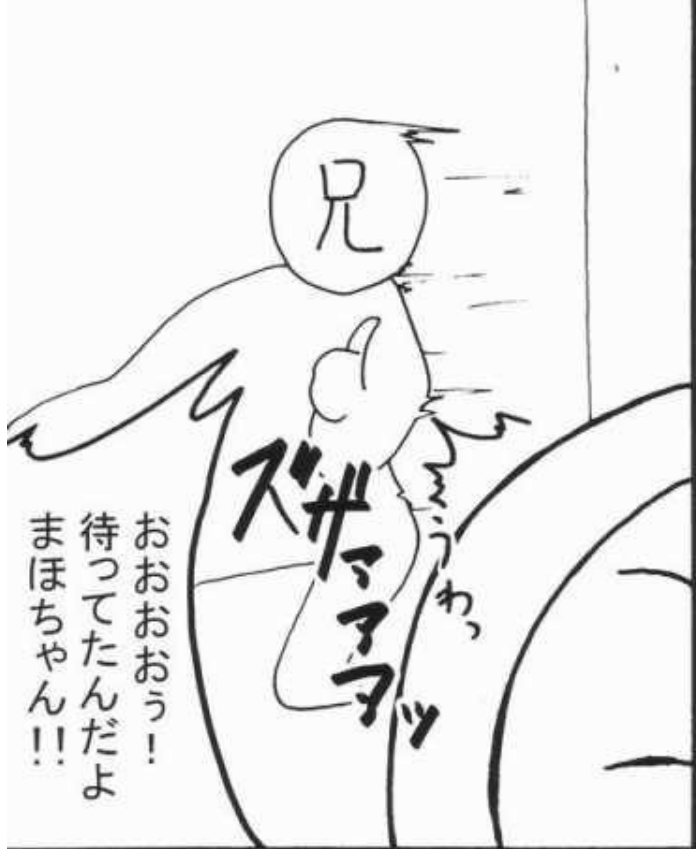 兄
ズザァァァッ
うわっ
おおおおぅ！
待ってたんだよ
まほちゃん！！